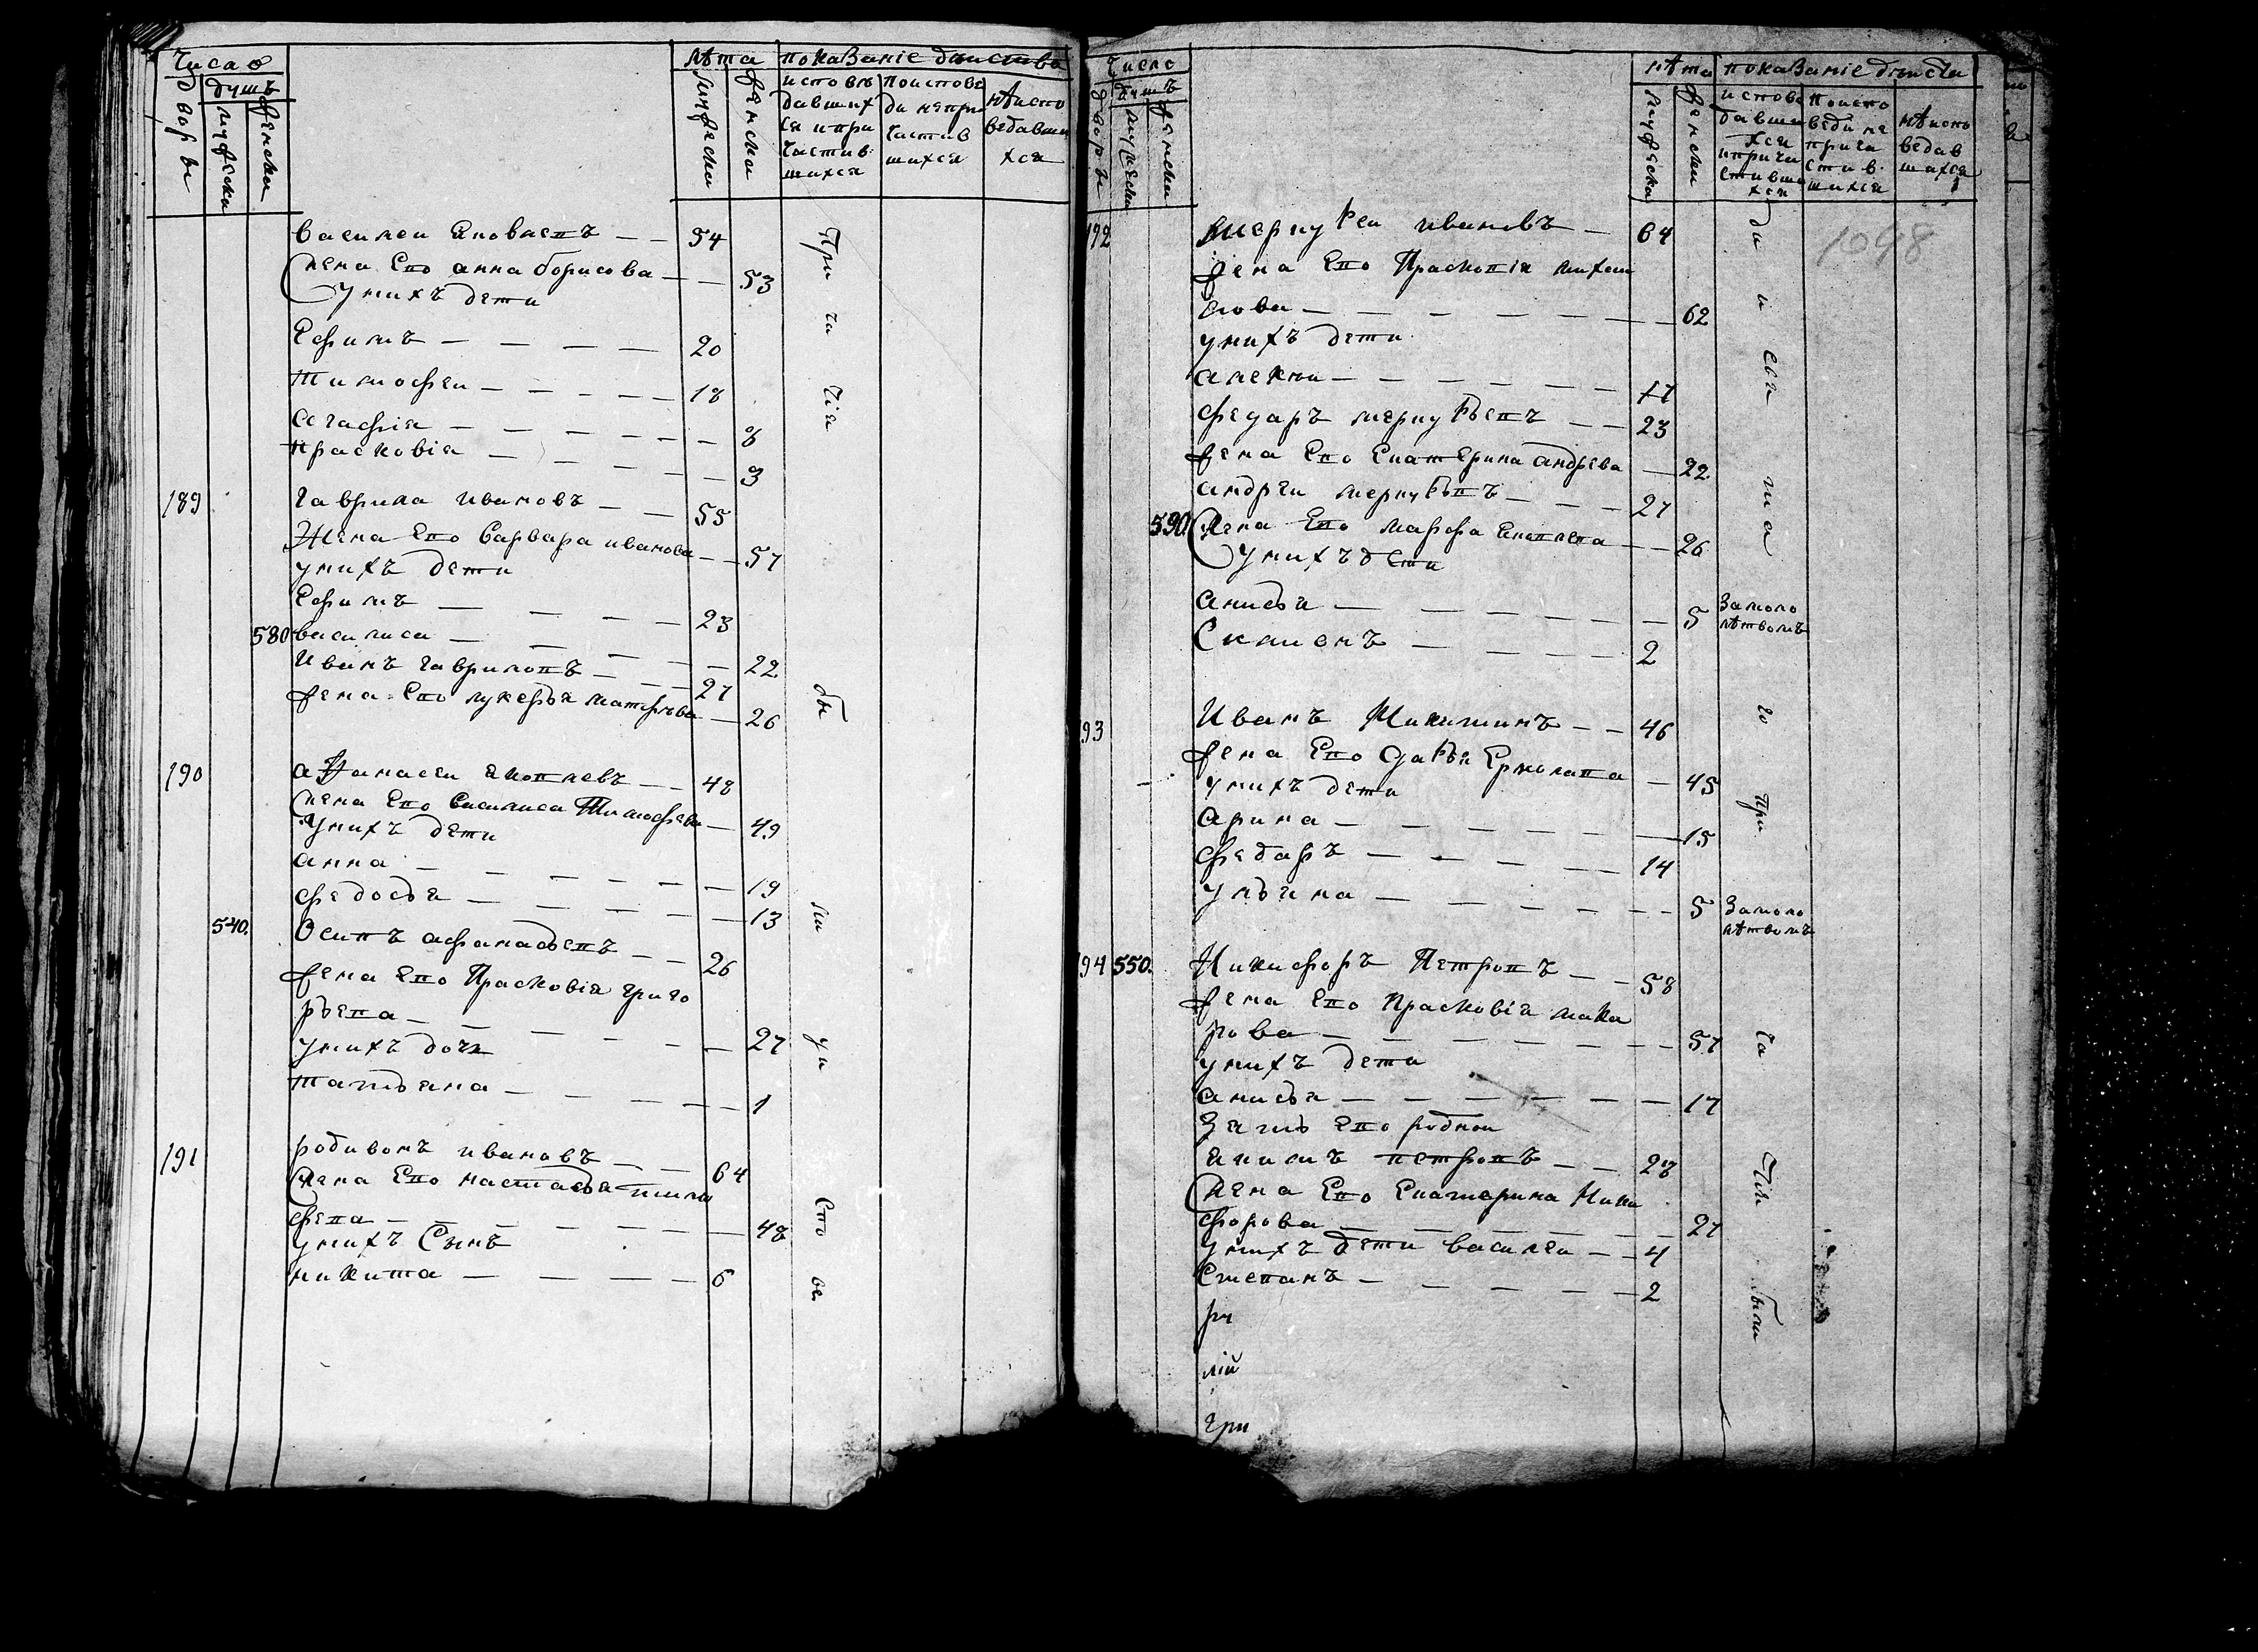 Число
лѣта показаніе дѣиства
дворы
душъ
мужеска
женска
мужеска
женска
исповѣ
давших
ся и при
частив
шихся
поиспове
ди непри
частив
шихся
нѣиспо
ведавши
хся
василеи Яковлевъ — — 54
жена Его анна борисова — — 53
У нихъ дети
Ефимъ — — — — 20
Тимофеи — — — — 18
Агафія — — — — — 8
прасковія — — — — — 3
189 гаврила ивановъ — — 55
Жена Его варвара иванова — — 57
у нихъ дети
Ефимъ — — — — 23
580 василиса — — — — 22
Иванъ гавриловъ — — — 27
жена Его лукерья матфеѣва — 26
190 афанасеи яковлевъ — — 48
жена Его василиса Тимофеева — 49
У нихъ дети
анна — — — — — — 19
федосья — — — — — 13
540. Осипъ афанасьевъ — — 26
жена Его Прасковія григо
рьева — — — — — — 27
у нихъ дочь
татьяна — — — — — 1
191 родивонъ ивановъ — — 64
жена Его настасья тимо
фева — — — — — — 48
у нихъ Сынъ
никита — — — — 6
При
ча
сія
бы
ли
у и
спо
ве
Число
лѣта показаніе дѣиства
дворы
душъ
мужеска
женска
мужеска
женска
испове
давши
хся
и прича
стивши
хся
поиспо
веди не
прича
стив
шихся
нѣиспо
ведав
шихся
1098
192 Меркурей ивановъ — 64
жена Его Прасковія михаи
лова — — — — — — 62
у нихъ дети
алексеи — — — — — 17
федаръ меркурьевъ — — 23
жена Его Екатерина андреева — 22
андреи меркурьевъ — — — 27
590 жена Его марфа Яковлева — — 26
У нихъ дети
анисья — — — — — 5 За мало
лѣтвомъ
Симионъ — — — — 2
93 Иванъ Микитинъ — — 46
жена Его Дарья Ермолаева — 45
у нихъ дети
арина — — — — — — 15
федаръ — — — — — 14
ульяна — — — — — — 5 За мало
лѣтвомъ
94 550. Никифоръ Петровъ — — 58
жена Его прасковія мака
рова — — — — — — 57
у нихъ дети
анисья — — — — — — 17
Зять Его родной
якимъ петровъ — — 28
жена Его Екатерина Ники
форова — — — — — 27
у нихъ дети василеи — — 4
Степанъ — — — — — 2
ри
лій
гри
да
и
свя
та
го
при
ча
стія
были